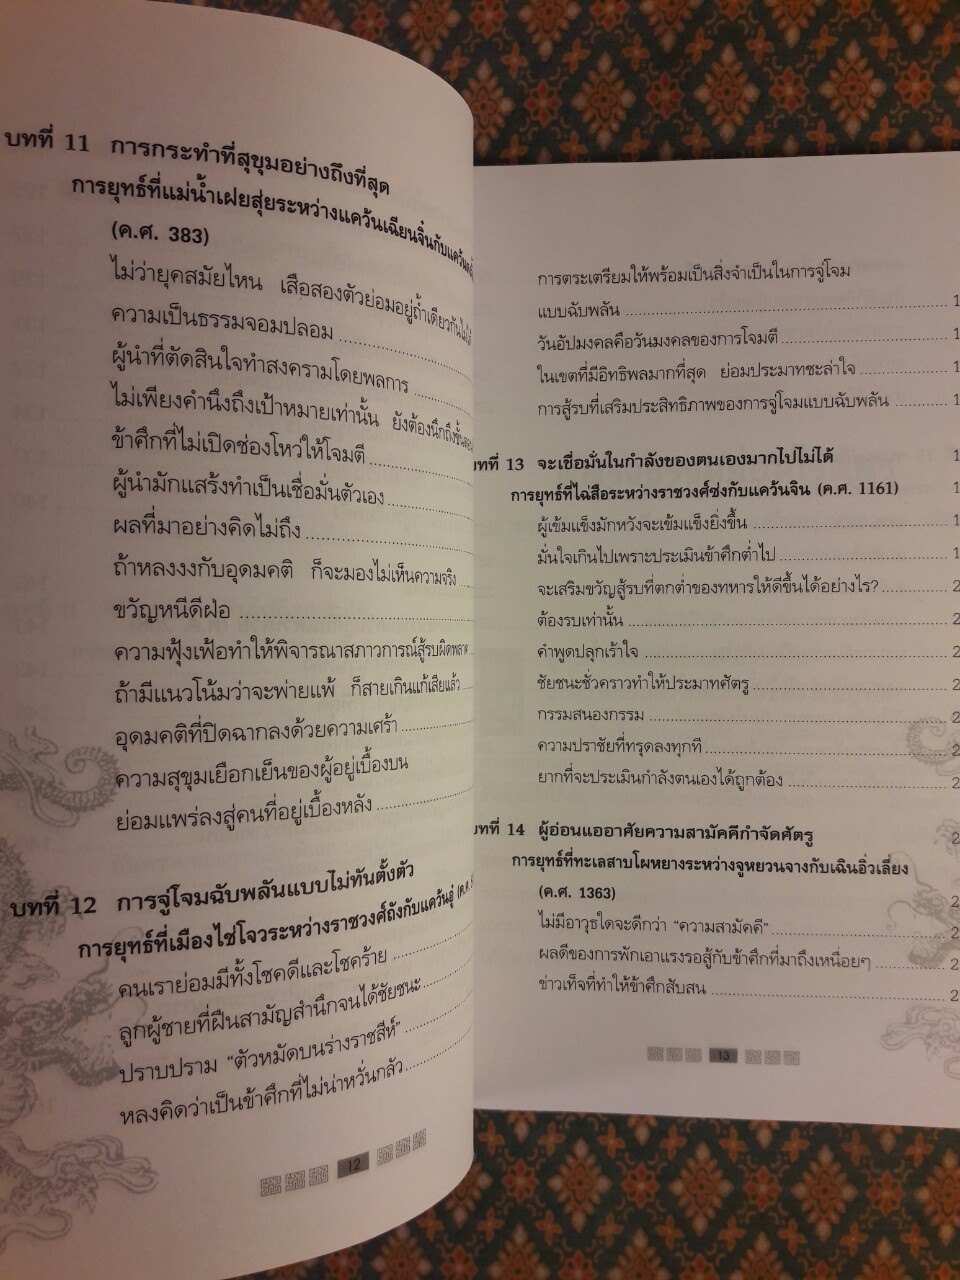 บทที่ 11 การกระทำที่สุขุมอย่างถึงที่สุด
การยุทธ์ที่แม่น้ำเฝยสุ่ยระหว่างแคว้นเฉียนจิ๋นกับแคว้น
(ค.ศ. 383)
ไม่ว่ายุคสมัยไหน เสือสองตัวย่อมอยู่ถ้ำเดียวกันไม่ได้
ความเป็นธรรมจอมปลอม
ผู้นำที่ตัดสินใจทำสงครามโดยพลการ
ไม่เพียงคำนึงถึงเป้าหมายเท่านั้น ยังต้องนึกถึงขั้น
ข้าศึกที่ไม่เปิดช่องโหว่ให้โจมตี
ผู้นำมักแสร้งทำเป็นเชื่อมั่นตัวเอง
ผลที่มาอย่างคิดไม่ถึง
ถ้าหลงงงกับอุดมคติ ก็จะมองไม่เห็นความจริง
ขวัญหนีดีฝ่อ
ความฟุ้งเฟ้อทำให้พิจารณาสภาวการณ์สู้รบผิดพลาด
ถ้ามีแนวโน้มว่าจะพ่ายแพ้ ก็สายเกินแก้เสียแล้ว
อุดมคติที่ปิดฉากลงด้วยความเศร้า
ความสุขุมเยือกเย็นของผู้อยู่เบื้องบน
ย่อมแพร่ลงสู่คนที่อยู่เบื้องหลัง
บทที่ 12 การจู่โจมฉับพลันแบบไม่ทันตั้งตัว
การยุทธ์ที่เมืองไช่โจวระหว่างราชวงศ์ถังกับแคว้นอู่ (ค.ศ.
คนเราย่อมมีทั้งโชคดีและโชคร้าย
ลูกผู้ชายที่ฝืนสามัญสำนึกจนได้ชัยชนะ
ปราบปราม “ตัวหมัดบนร่างราชสีห์”
หลงคิดว่าเป็นข้าศึกที่ไม่น่าหวั่นกลัว
12
การตระเตรียมให้พร้อมเป็นสิ่งจำเป็นในการจู่โจม
แบบฉับพลัน 1
วันอัปมงคลคือวันมงคลของการโจมตี 1
ในเขตที่มีอิทธิพลมากที่สุด ย่อมประมาทชะล่าใจ 1
การสู้รบที่เสริมประสิทธิภาพของการจู่โจมแบบฉับพลัน 1
บทที่ 13 จะเชื่อมั่นในกำลังของตนเองมากไปไม่ได้ 1
การยุทธ์ที่ไฉ่สือระหว่างราชวงศ์ซ่งกับแคว้นจิน (ค.ศ. 1161) 1
ผู้เข้มแข็งมักหวังจะเข้มแข็งยิ่งขึ้น 1
มั่นใจเกินไปเพราะประเมินข้าศึกต่ำไป 1
จะเสริมขวัญสู้รบที่ตกต่ำของทหารให้ดีขึ้นได้อย่างไร? 2
ต้องรบเท่านั้น 2
คำพูดปลุกเร้าใจ 2
ชัยชนะชั่วคราวทำให้ประมาทศัตรู 2
กรรมสนองกรรม 2
ความปราชัยที่ทรุดลงทุกที 2
ยากที่จะประเมินกำลังตนเองได้ถูกต้อง 2
บทที่ 14 ผู้อ่อนแออาศัยความสามัคคีกำจัดศัตรู 2
การยุทธ์ที่ทะเลสาบโผหยางระหว่างจูหยวนจางกับเฉินอิ่วเลี่ยง
(ค.ศ. 1363) 2
ไม่มีอาวุธใดจะดีกว่า “ความสามัคคี” 2
ผลดีของการพักเอาแรงรอสู้กับข้าศึกที่มาถึงเหนื่อยๆ 2
ข่าวเท็จที่ทำให้ข้าศึกสับสน 2
13